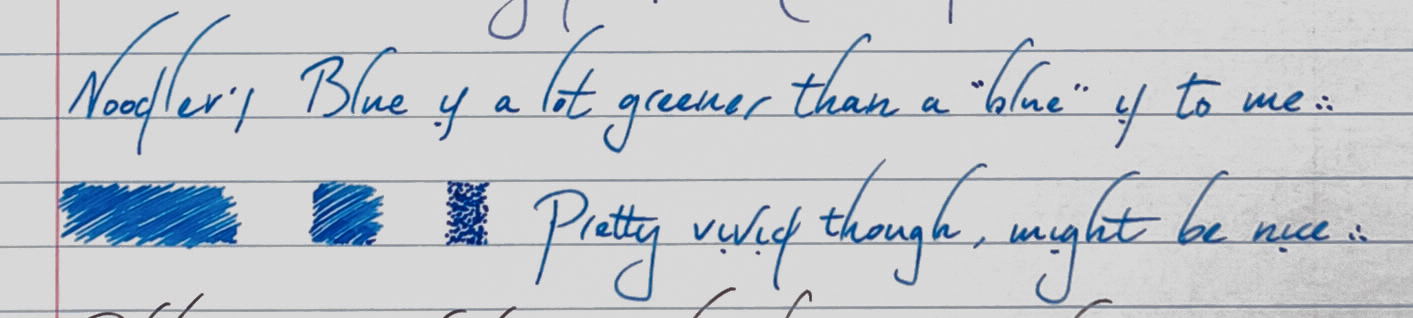 Noodler's Blue is a lot greener than a "blue" is to me..
Pretty vivid though, might be nice..